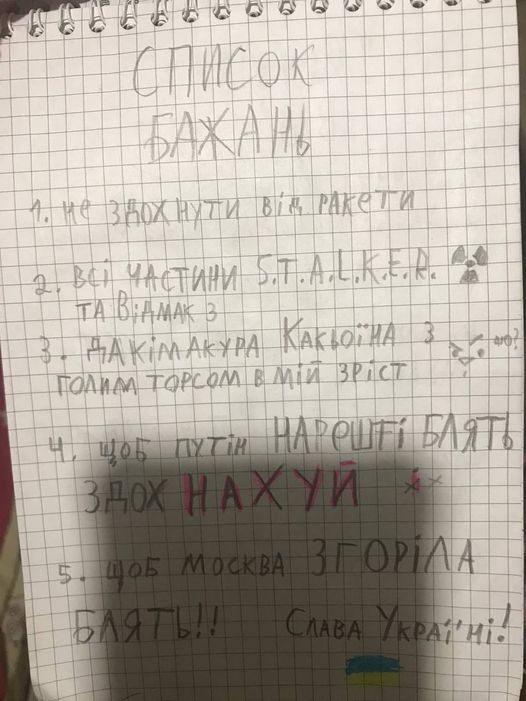 СПИСОК
БАЖАНЬ
1. НЕ ЗДОХНУТИ ВІД РАКЕТИ
2. ВСІ ЧАСТИНИ S.T.A.L.K.E.R.
ТА ВІДМАК 3
3. ДАКІМАКУРА КАКЬОЇНА З
ГОЛИМ ТОРСОМ В МІЙ ЗРІСТ
4. ЩОБ ПУТІН НАРЕШТІ БЛЯТЬ
ЗДОХ НАХУЙ
5. ЩОБ МОСКВА ЗГОРІЛА
БЛЯТЬ!! СЛАВА УКРАЇНІ!